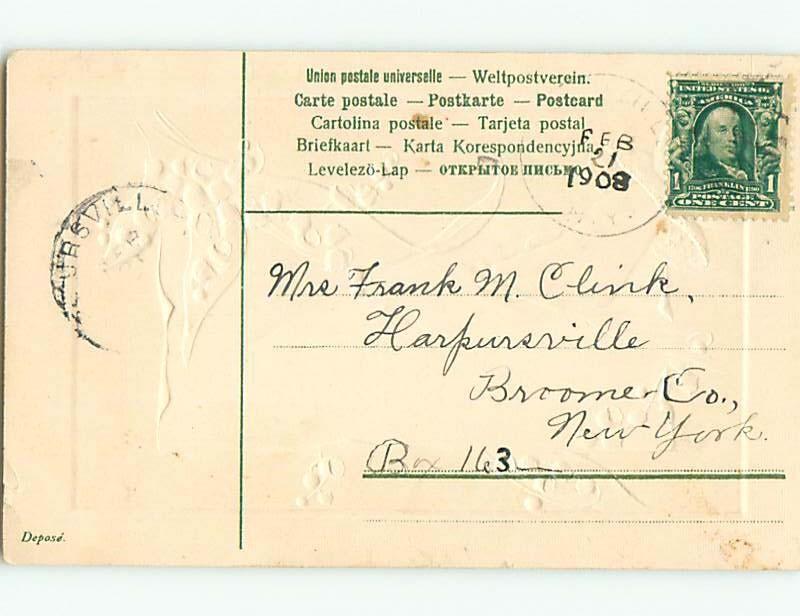 Union postale universelle — Weltpostverein.
Carte postale — Postkarte — Postcard
Cartolina postale — Tarjeta postal
Briefkaart — Karta Korespondencyjna
Levelező-Lap — ОТКРЫТОЕ ПИСЬМО
FEB
21
1908
N.Y.
UNITED STATES OF
AMERICA
1 FRANKLIN 1
POSTAGE
ONE CENT
URSVILLE
FEB
Mrs Frank M. Clink,
Harpursville
Broome Co.,
New York.
Box 163
Deposé.